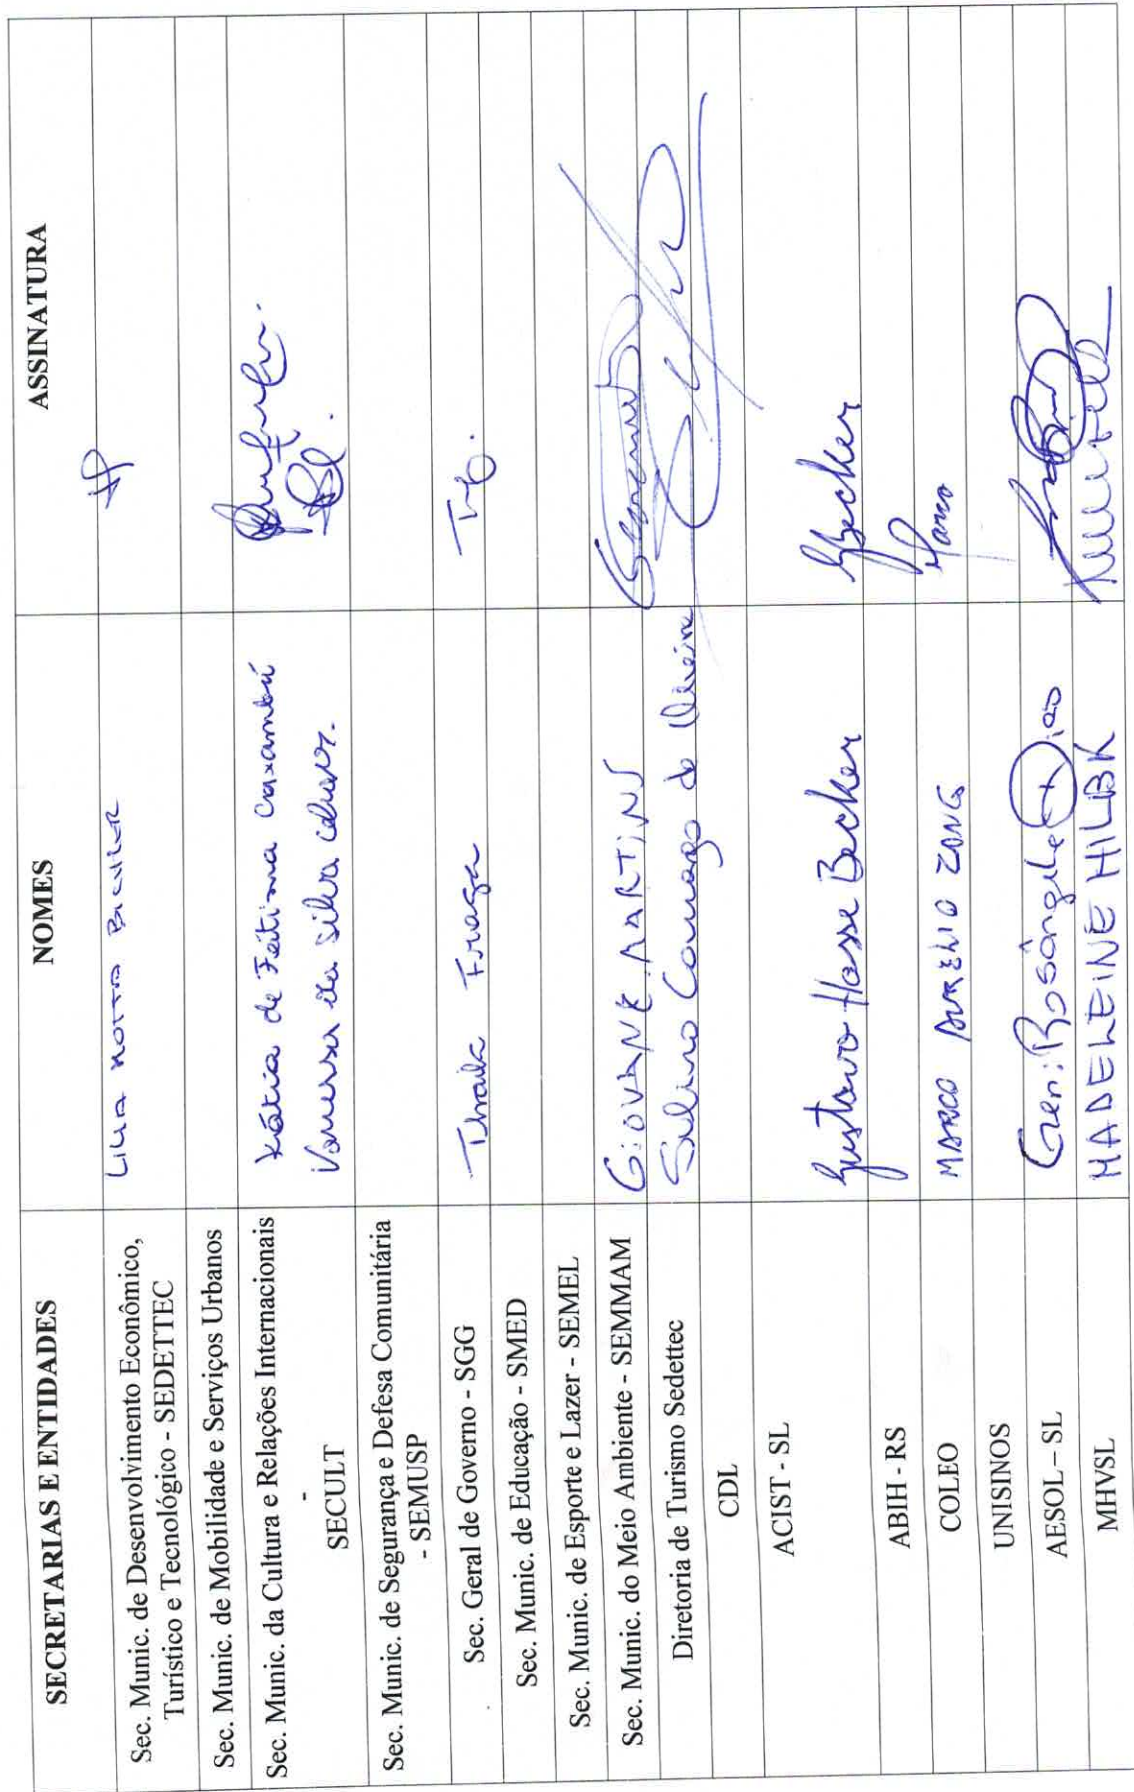 SECRETARIAS E ENTIDADES NOMES ASSINATURA
Sec. Munic. de Desenvolvimento Econômico,
Turístico e Tecnológico - SEDETTEC
Sec. Munic. de Mobilidade e Serviços Urbanos
Sec. Munic. da Cultura e Relações Internacionais
-
SECULT
Kátia de Fátima Caxambú
Vanessa da Silva
Sec. Munic. de Segurança e Defesa Comunitária
- SEMUSP
Sec. Geral de Governo - SGG Fraga
Sec. Munic. de Educação - SMED
Sec. Munic. de Esporte e Lazer - SEMEL
Sec. Munic. do Meio Ambiente - SEMMAM GIOVANE MARTINS
Diretoria de Turismo Sedettec Camargo de Oliveira
CDL
ACIST - SL Gustavo Hasse Becker GBecker
ABIH - RS
COLEO MARCO AURÉLIO ZANG Marco
UNISINOS
AESOL – SL Geni Rosângele
MHVSL MADELEINE HILBK